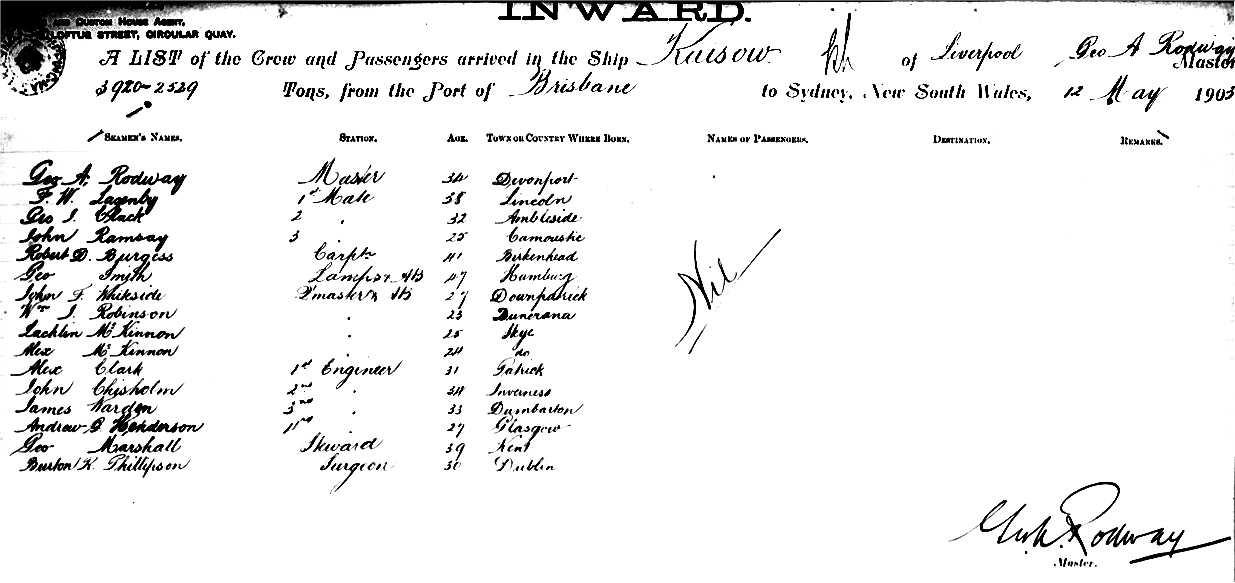 INWARD.
AND CUSTOM HOUSE AGENT,
LOFTUS STREET, CIRCULAR QUAY.
A LIST of the Crew and Passengers arrived in the Ship of Liverpool Geo A Rodway Master
3920-2529 Tons, from the Port of Brisbane to Sydney, New South Wales, 12 May 1903
SEAMEN'S NAMES. STATION. AGE. TOWN OR COUNTRY WHERE BORN. NAMES OF PASSENGERS. DESTINATION. REMARKS.
Geo A. Rodway Master 34 Devonport
F. W. Lazenby 1st Mate 38 Lincoln
Geo J. Clack 2 " 32 Ambleside
John Ramsay 3 " 25 Carnoustie
Robert D. Burgess Carptr 41 Birkenhead
Geo Smith Lampsr AB 47 Hamburg
John F. Whiteside AB 27 Downpatrick
Wm J. Robinson " 23
Lachlin McKinnon " 25 Skye
Alex McKinnon " 24 do
Alex Clark 1st Engineer 31 Patrick
John Chisholm 2nd " 34 Inverness
James Warden 3rd " 33 Dumbarton
Andrew G Henderson " 27 Glasgow
Geo Marshall Steward 39 Kent
Burton K. Phillipson Surgeon 30 Dublin
Nil
Geo A. Rodway
Master.